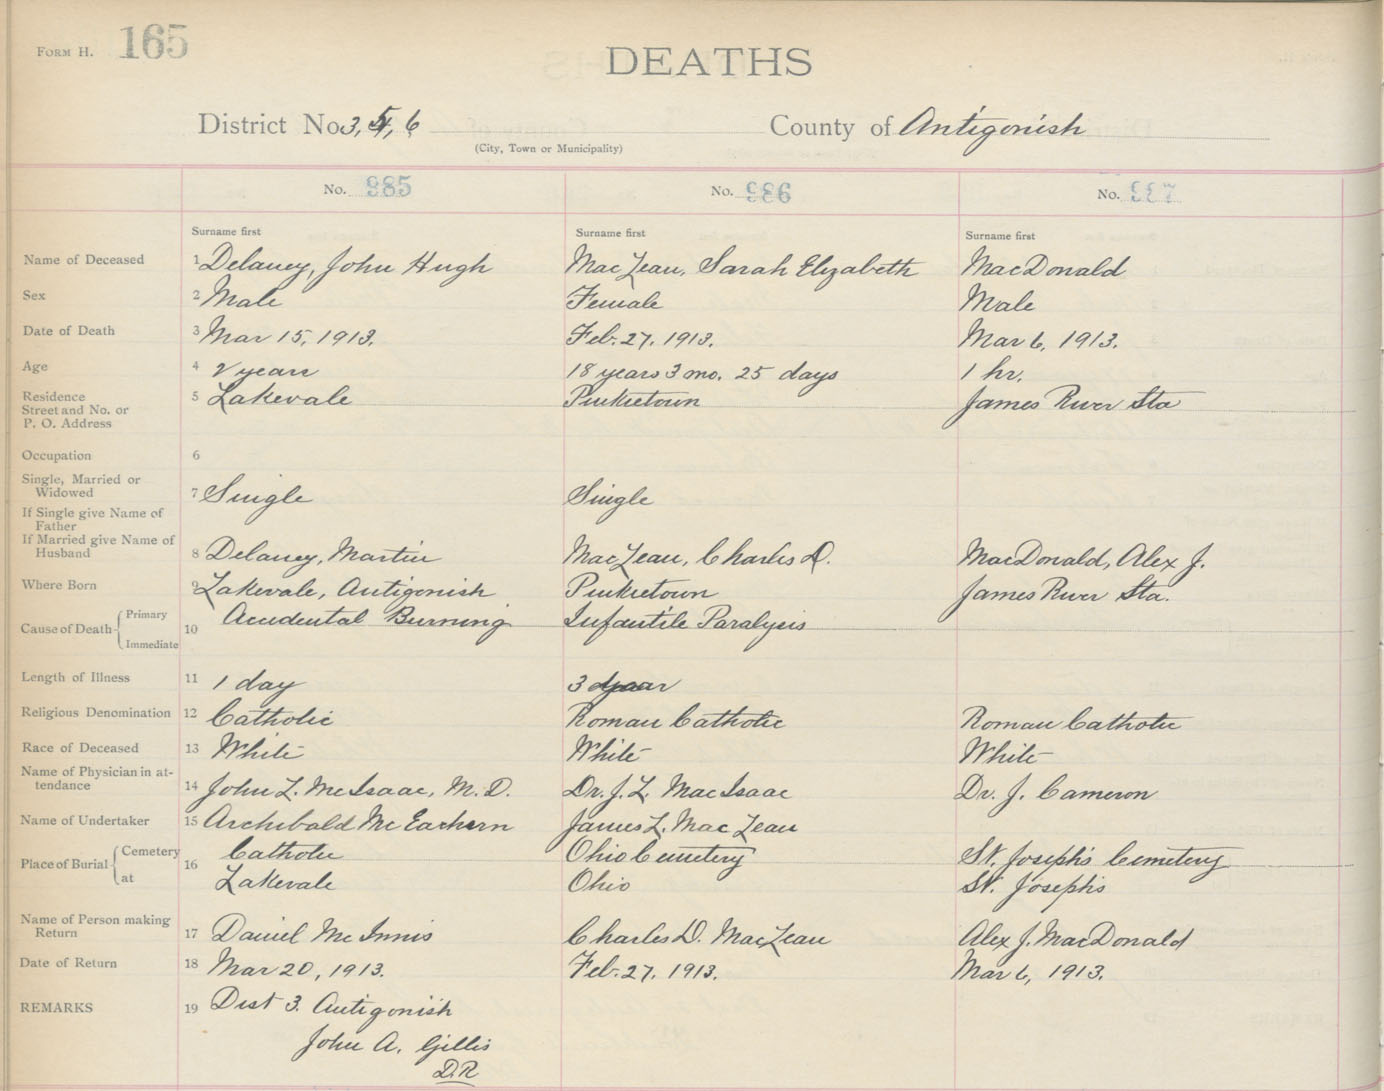 FORM H. 165
DEATHS
District No. 3, 5, 6 County of Antigonish
(City, Town or Municipality)
No. 985 No. 986 No. 987
Surname first Surname first Surname first
Name of Deceased 1 Delaney, John Hugh MacLean, Sarah Elizabeth MacDonald
Sex 2 Male Female Male
Date of Death 3 Mar 15, 1913. Feb. 27. 1913. Mar 6, 1913.
Age 4 2 years 18 years 3 mo. 25 days 1 hr.
Residence 5 Lakevale Pinkietown James River Sta
Street and No. or
P. O. Address
Occupation 6
Single, Married or
Widowed 7 Single Single
If Single give Name of
Father
If Married give Name of
Husband 8 Delaney, Martin MacLean, Charles D. MacDonald, Alex J.
Where Born 9 Lakevale, Antigonish Pinkietown James River Sta.
Cause of Death Primary Immediate 10 Accidental Burning Infantile Paralysis
Length of Illness 11 1 day 3
Religious Denomination 12 Catholic Roman Catholic Roman Catholic
Race of Deceased 13 White White White
Name of Physician in at-
tendance 14 John L. McIsaac, M.D. Dr. J. L. MacIsaac Dr. J. Cameron
Name of Undertaker 15 Archibald McEachern James L. MacLean
Place of Burial Cemetery 16 Catholic Ohio Cemetery St. Joseph's Cemetery
at Lakevale Ohio St. Joseph's
Name of Person making
Return 17 Daniel McInnis Charles D. MacLean Alex J. MacDonald
Date of Return 18 Mar 20, 1913. Feb. 27. 1913. Mar 6, 1913.
REMARKS 19 Dist 3. Antigonish
John A. Gillis
D.R